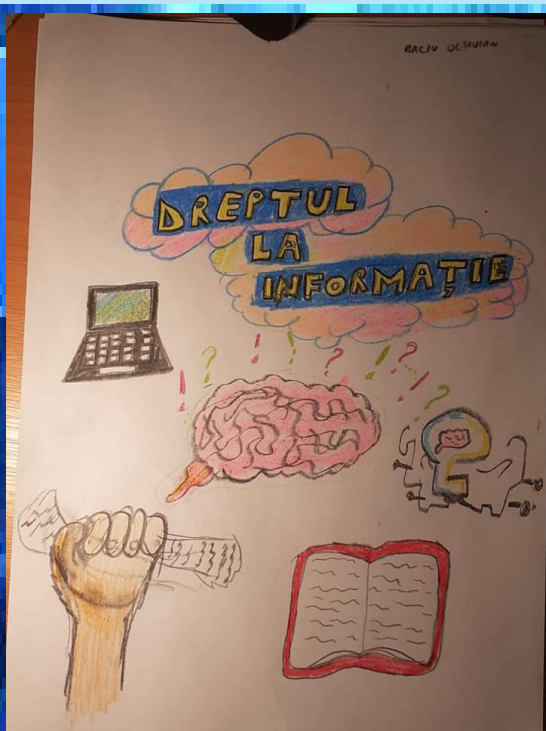 BACIU OCTAVIAN
DREPTUL
LA
INFORMAȚIE